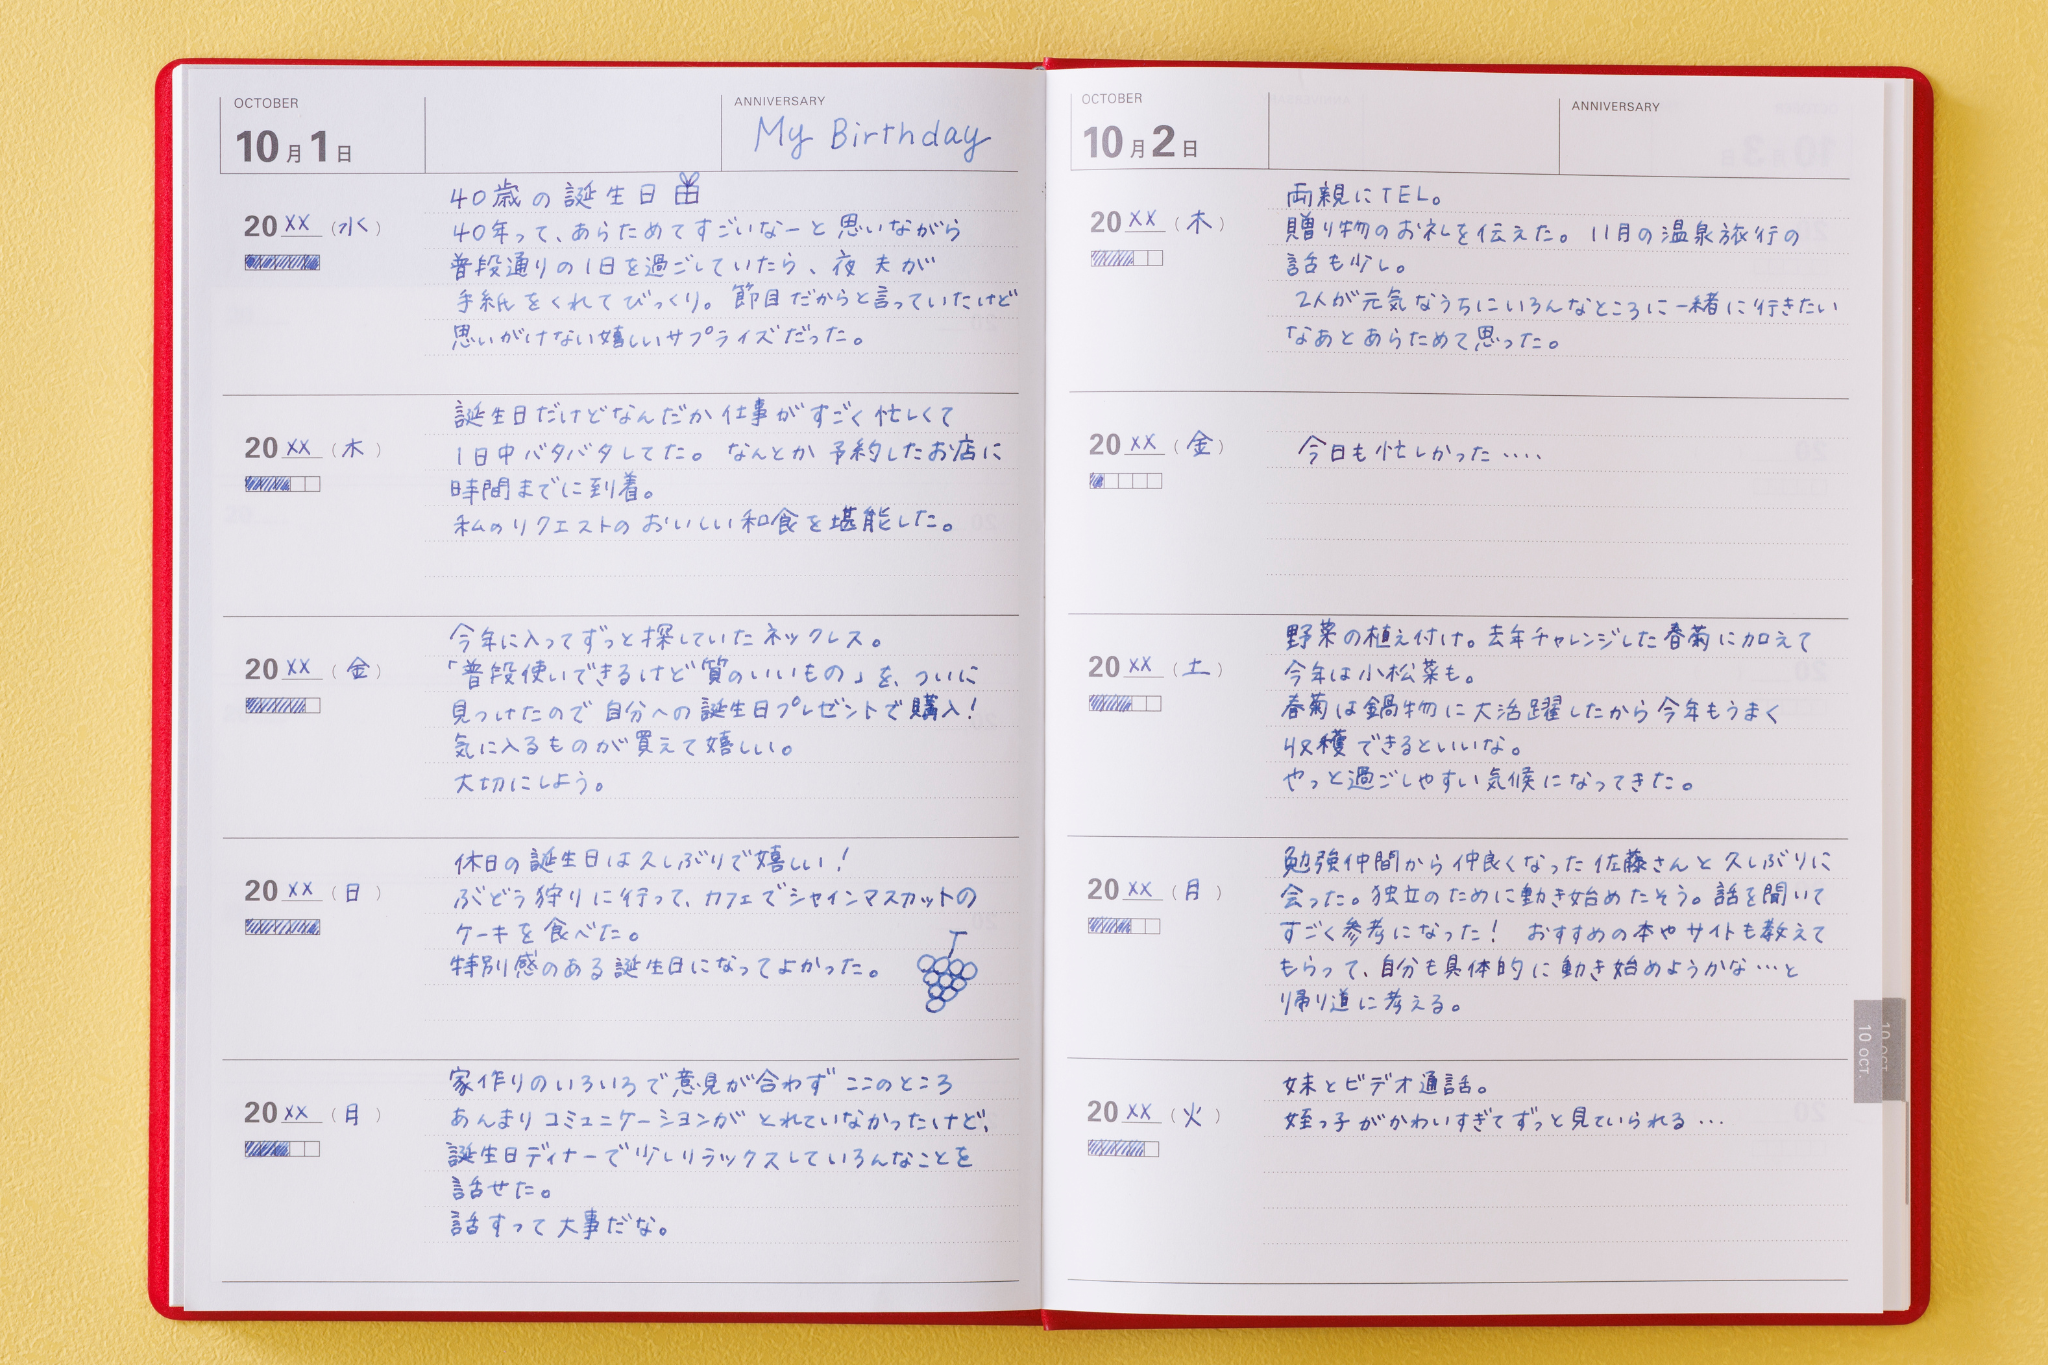 OCTOBER
10月1日
ANNIVERSARY
My Birthday
20XX(水)
40歳の誕生日
40年って、あらためてすごいなーと思いながら
普段通りの1日を過ごしていたら、夜 夫が
手紙をくれてびっくり。節目だからと言っていたけど
思いがけない嬉しいサプライズだった。
20XX(木)
誕生日だけどなんだか仕事がすごく忙しくて
1日中バタバタしてた。なんとか予約したお店に
時間までに到着。
私のリクエストのおいしい和食を堪能した。
20XX(金)
今年に入ってずっと探していたネックレス。
「普段使いできるけど質のいいもの」を、ついに
見つけたので自分への誕生日プレゼントで購入!
気に入るものが買えて嬉しい。
大切にしよう。
20XX(日)
休日の誕生日は久しぶりで嬉しい!
ぶどう狩りに行って、カフェでシャインマスカットの
ケーキを食べた。
特別感のある誕生日になってよかった。
20XX(月)
家作りのいろいろで意見が合わず ここのところ
あんまりコミュニケーションがとれていなかったけど、
誕生日ディナーで少しリラックスしていろんなことを
話せた。
話すって大事だな。
OCTOBER
10月2日
ANNIVERSARY
20XX(木)
両親にTEL。
贈り物のお礼を伝えた。11月の温泉旅行の
話も少し。
2人が元気なうちにいろんなところに一緒に行きたい
なあとあらためて思った。
20XX(金)
今日も忙しかった‥‥
20XX(土)
野菜の植え付け。去年チャレンジした春菊に加えて
今年は小松菜も。
春菊は鍋物に大活躍したから今年もうまく
収穫できるといいな。
やっと過ごしやすい気候になってきた。
20XX(月)
勉強仲間から仲良くなった佐藤さんと久しぶりに
会った。独立のために動き始めたそう。話を聞いて
すごく参考になった! おすすめの本やサイトも教えて
もらって、自分も具体的に動き始めようかな…と
帰り道に考える。
20XX(火)
妹とビデオ通話。
姪っ子がかわいすぎてずっと見ていられる…
10 OCT.
10 OCT.